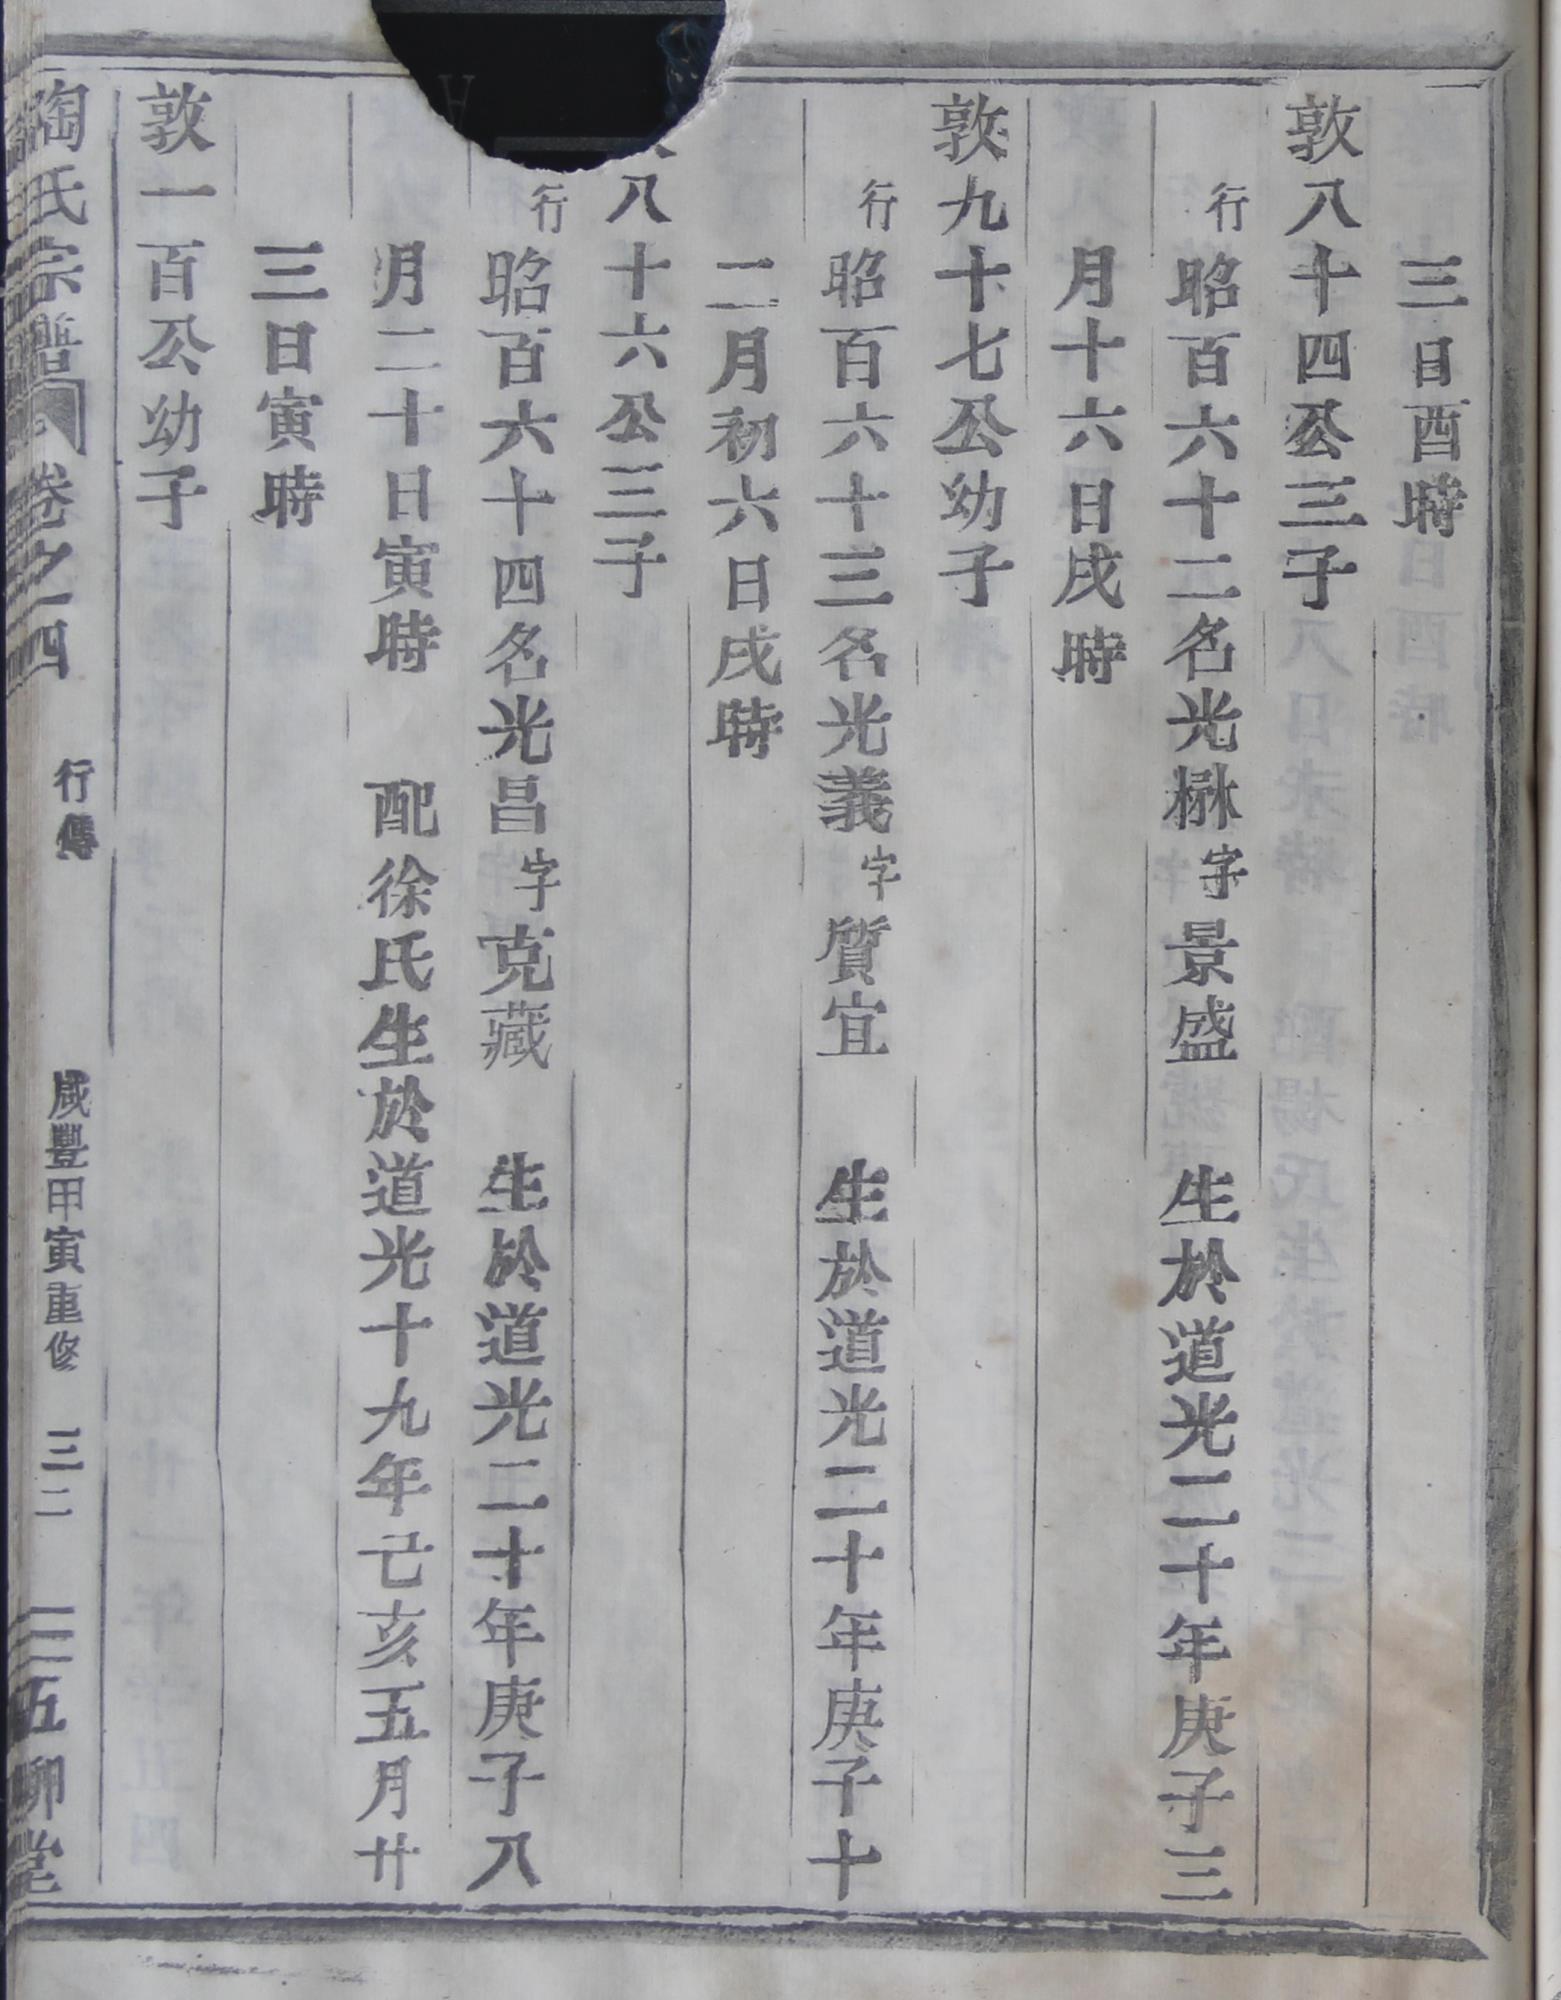 三日酉時
敦八十四公三子
行昭百六十二名光楙字景盛 生於道光二十年庚子三
月十六日戌時
敦九十七公幼子
行昭百六十三名光義字質宜 生於道光二十年庚子十
二月初六日戌時
八十六公三子
行昭百六十四名光昌字克藏 生於道光二十年庚子八
月二十日寅時 配徐氏生於道光十九年己亥五月廿
三日寅時
敦一百公幼子
陶氏宗譜 卷之四 行傳 咸豐甲寅重修 三二 五柳堂